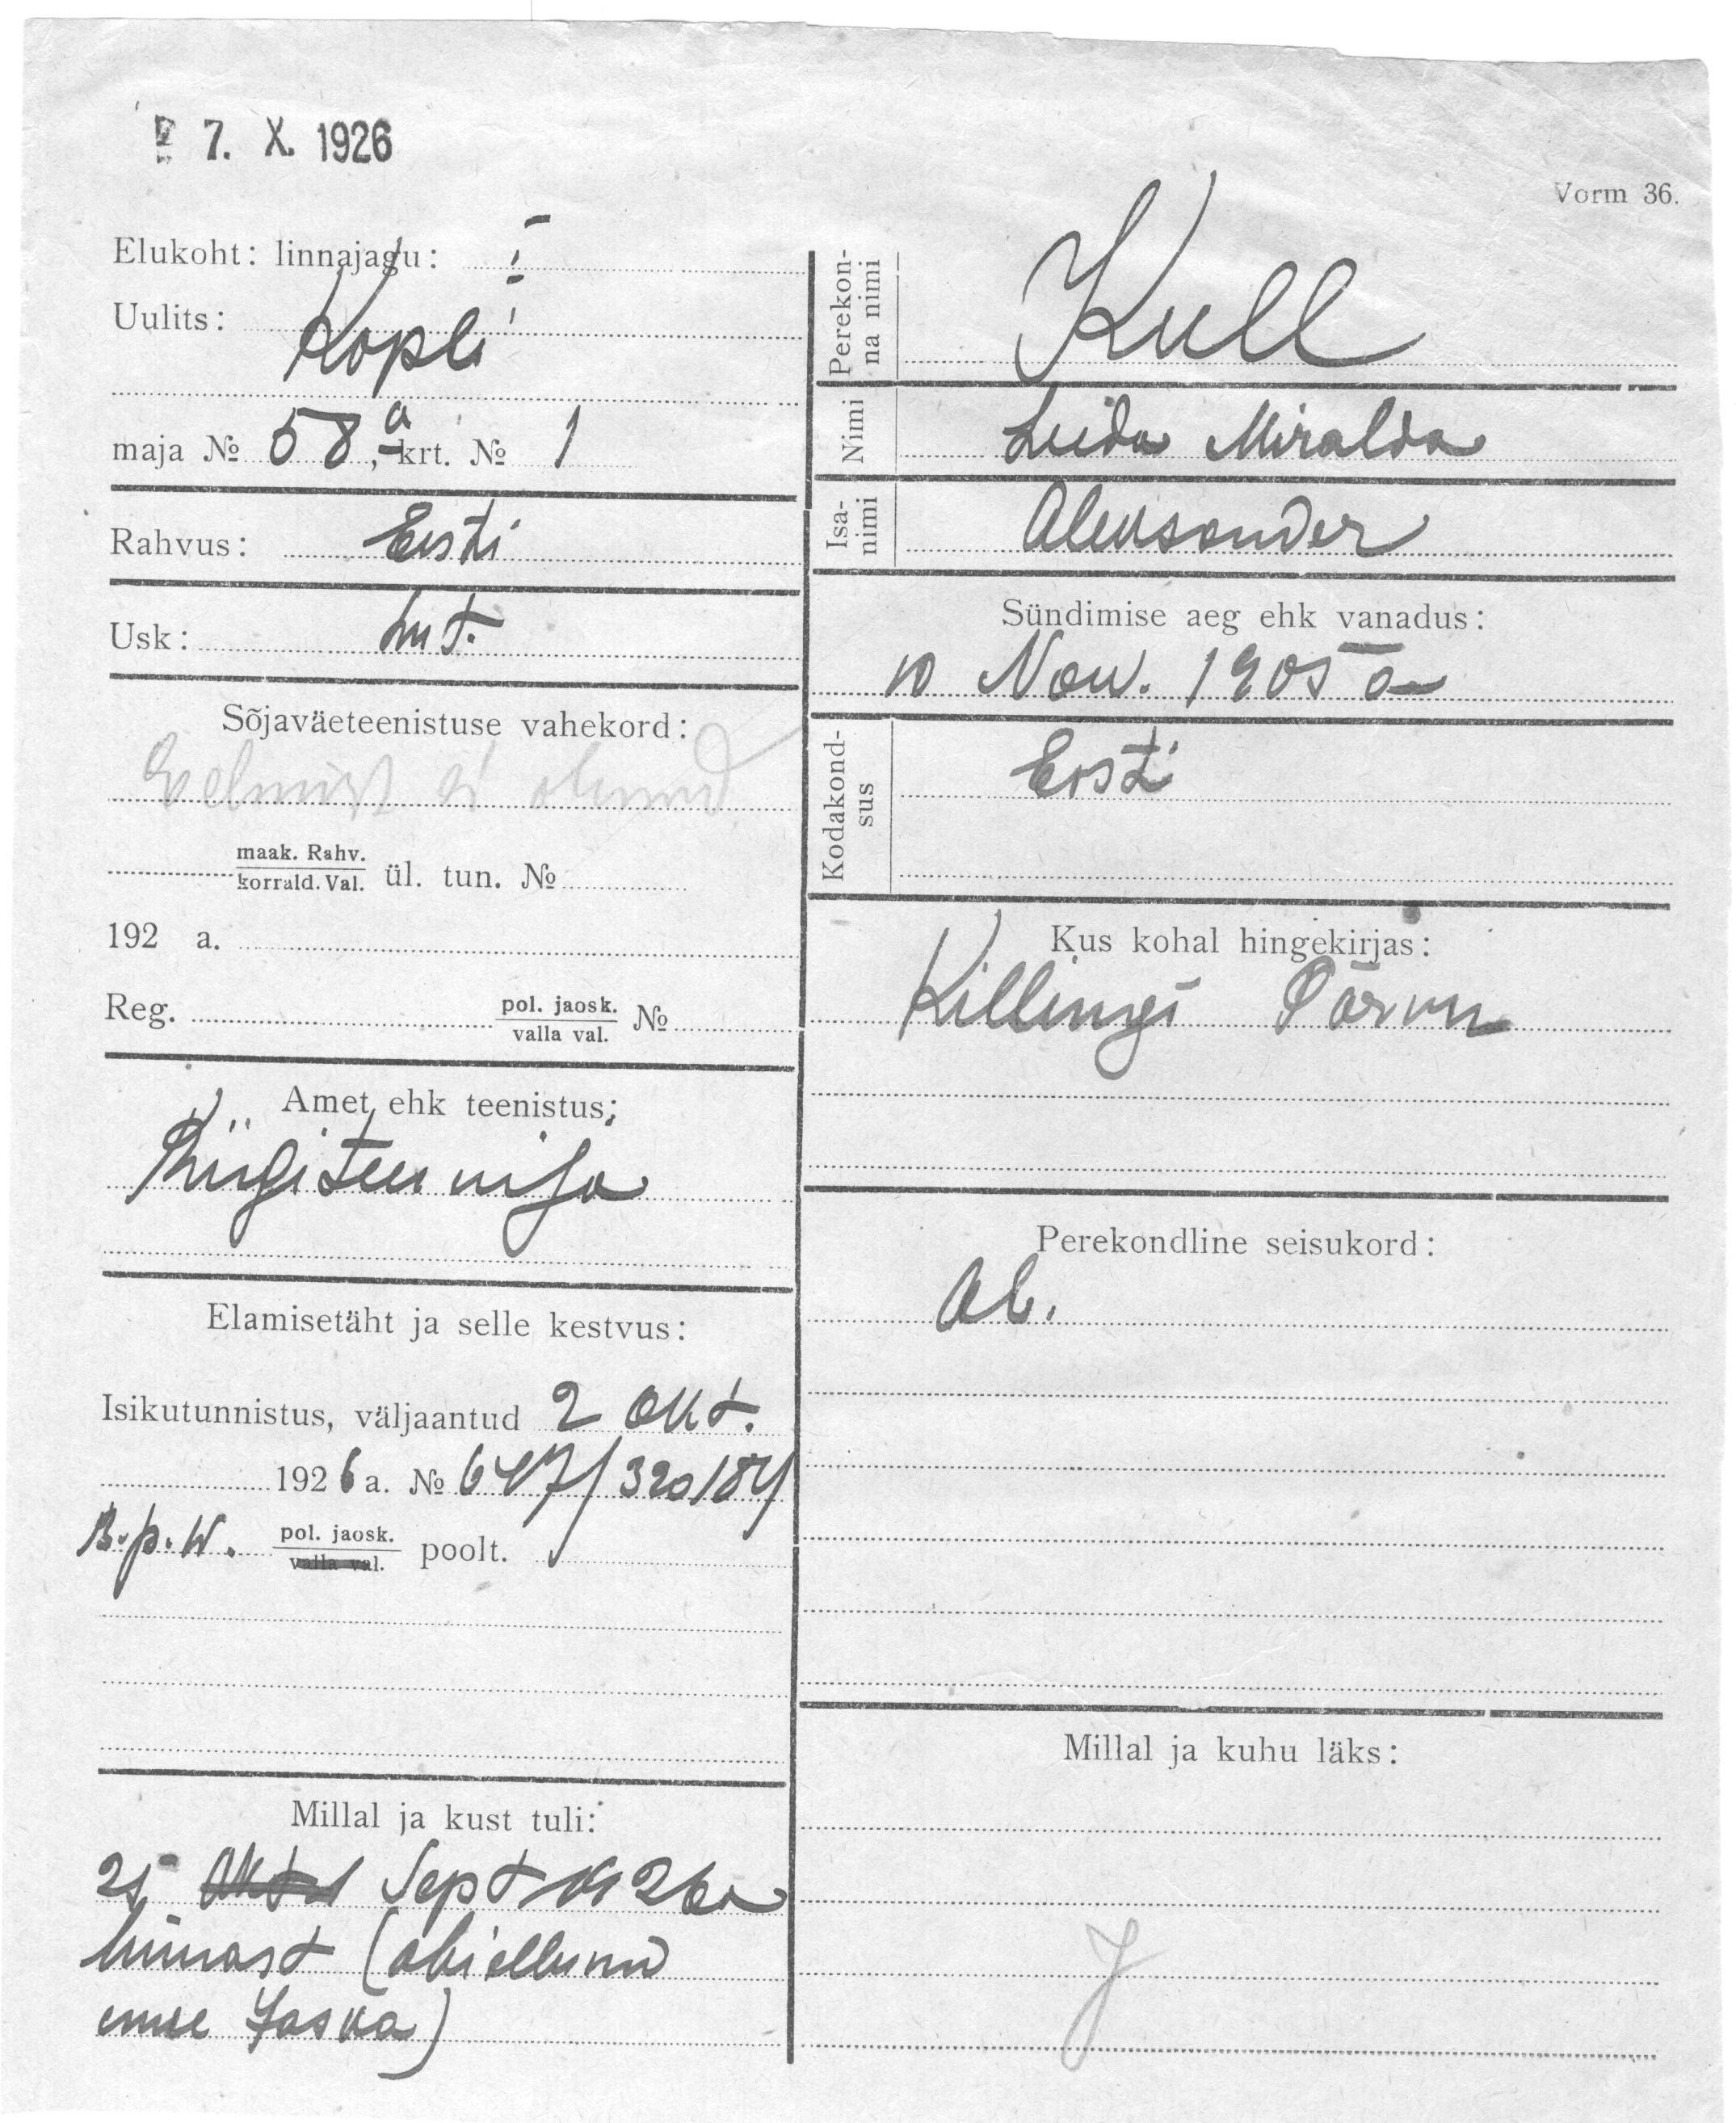 7. X. 1926
Vorm 36.
Elukoht: linnajagu: I
Uulits: Kopli
maja № 58a, krt. № 1
Rahvus: Eesti
Usk: Lut.
Sõjaväeteenistuse vahekord:
ei olnud
maak. Rahv.
korrald. Val. ül. tun. №
192 a.
Reg. pol. jaosk.
valla val. №
Amet ehk teenistus:
Riigiteenija
Elamisetäht ja selle kestvus:
Isikutunnistus, väljaantud 2 Okt.
1926 a. № 647/320184
B.p.W. pol. jaosk.
valla val. poolt.
Millal ja kust tuli:
25 Sept 1926 a
linnast (abiellunud
enne Jaska)
Perekon-
na nimi
Kull
Nimi Leida Miralda
Isa-
nimi
Aleksander
Sündimise aeg ehk vanadus:
10 Now. 1905 a
Kodakond-
sus
Eesti
Kus kohal hingekirjas:
Killingi Pärnu
Perekondline seisukord:
Ab.
Millal ja kuhu läks:
J